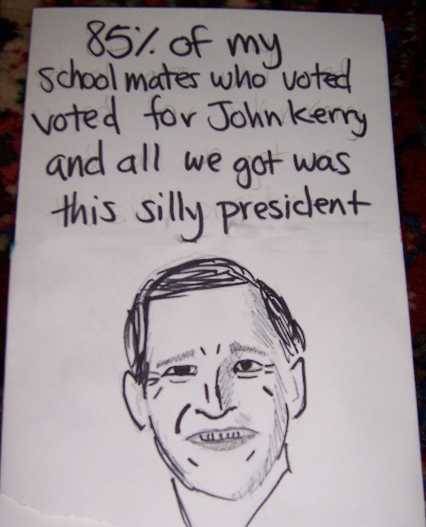 85% of my
school mates who voted
voted for John Kerry
and all we got was
this silly president